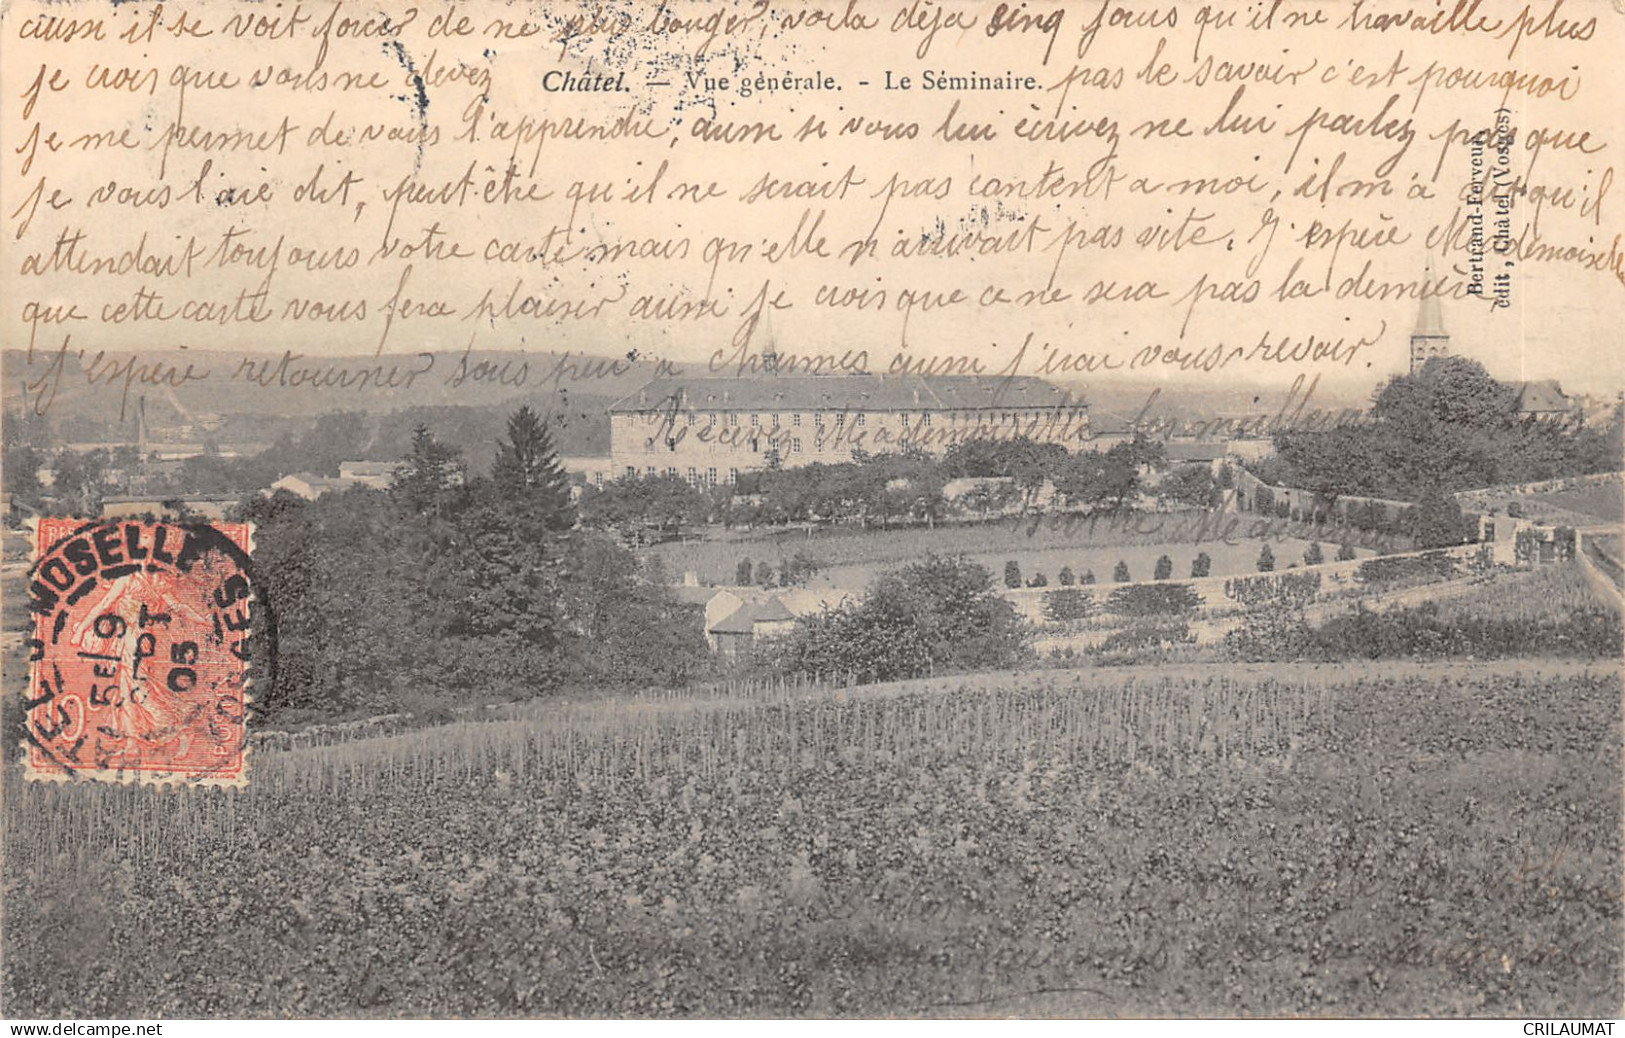 aussi il se voit forcer de ne plus bouger, voila déja cinq jours qu'il ne travaille plus
je crois que vous ne devez pas le savoir c'est pourquoi
Châtel. — Vue générale. - Le Séminaire.
je me permet de vous l'apprendre, aussi si vous lui écrivez ne lui parlez pas que
je vous l'aie dit, peut-être qu'il ne serait pas content a moi, il m'a dit qu'il
attendait toujours votre carte mais qu'elle n'arrivait pas vite. J'espère Mademoiselle
que cette carte vous fera plaisir aussi je crois que ce ne sera pas la dernière
J'espère retourner sous peu a Charmes aussi j'irai vous revoir.
Recevez Mademoiselle les meilleurs
Bertrand-Ferveur,
édit., Châtel (Vosges)
CHATEL-S-MOSELLE
VOSGES
5E/9
SEPT
05
10
CRILAUMAT